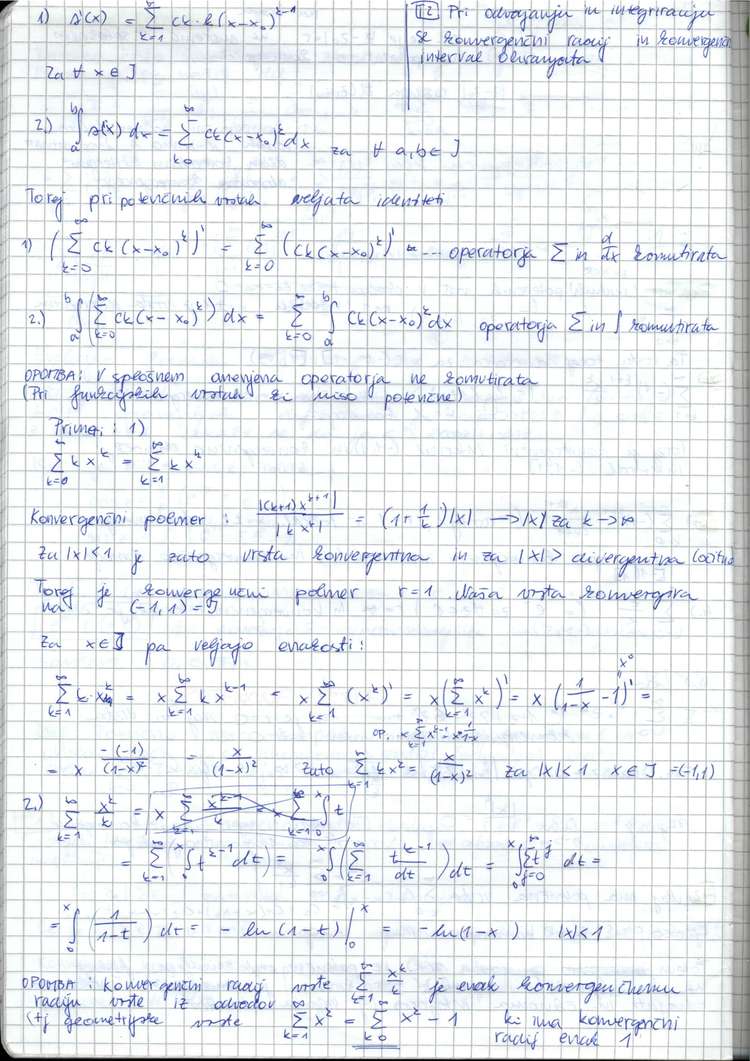 1) s'(x) = ∞ Σ k=1 ck · k(x-x₀)^(k-1)
T2 Pri odvajanju in integriranju
se konvergenčni radij in konvergenčni
interval ohranjata
za ∀ x ∈ J
2.) b ∫ a s(x) dx = ∞ Σ k=0 ck(x-x₀)^k dx za ∀ a,b ∈ J
Torej pri potenčnih vrstah veljata identiteti
1) (∞ Σ k=0 ck(x-x₀)^k)' = ∞ Σ k=0 (ck(x-x₀)^k)' ... operatorja Σ in d/dx komutirata
2.) b ∫ a (∞ Σ k=0 ck(x-x₀)^k) dx = ∞ Σ k=0 b ∫ a ck(x-x₀)^k dx operatorja Σ in ∫ komutirata
OPOMBA: V splošnem omenjena operatorja ne komutirata
(Pri funkcijskih vrstah ki niso potenčne)
Primeri: 1)
∞ Σ k=0 k x^k = ∞ Σ k=1 k x^k
Konvergenčni polmer: |(k+1)x^(k+1)| / |k x^k| = (1+1/k)|x| → |x| za k→∞
Za |x|<1 je zato vrsta konvergentna in za |x|> divergentna (očitno
Torej je konvergenčni polmer r=1. Naša vrsta konvergira
na (-1,1)=J
Za x∈J pa veljajo enakosti:
x⁰
∞ Σ k=1 k·x^k = x ∞ Σ k=1 k x^(k-1) = x ∞ Σ k=1 (x^k)' = x(∞ Σ k=1 x^k)' = x(1/(1-x) - 1)' =
op. x ∞ Σ k=1 x^(k-1) = x 1/(1-x)
= x -(-1)/(1-x)² = x/(1-x)² zato ∞ Σ k=1 k x^k = x/(1-x)² za |x|<1 x∈J=(-1,1)
2.) ∞ Σ k=1 x^k/k = x ∞ Σ k=1 x^(k-1)/k = ∞ Σ k=1 x ∫ 0 t
= ∞ Σ k=1 (x ∫ 0 t^(k-1) dt) = x ∫ 0 (∞ Σ k=1 t^(k-1)/dt) dt = x ∫ 0 ∞ Σ j=0 t^j dt =
= x ∫ 0 (1/(1-t)) dt = - ln(1-t) |₀^x = -ln(1-x) |x|<1
OPOMBA: Konvergenčni radij vrste ∞ Σ k=1 x^k/k je enak konvergenčnemu
radiju vrste iz odvodov
(tj geometrijske vrste ∞ Σ k=1 x^k = ∞ Σ k=0 x^k - 1 ki ima konvergenčni
radij enak 1